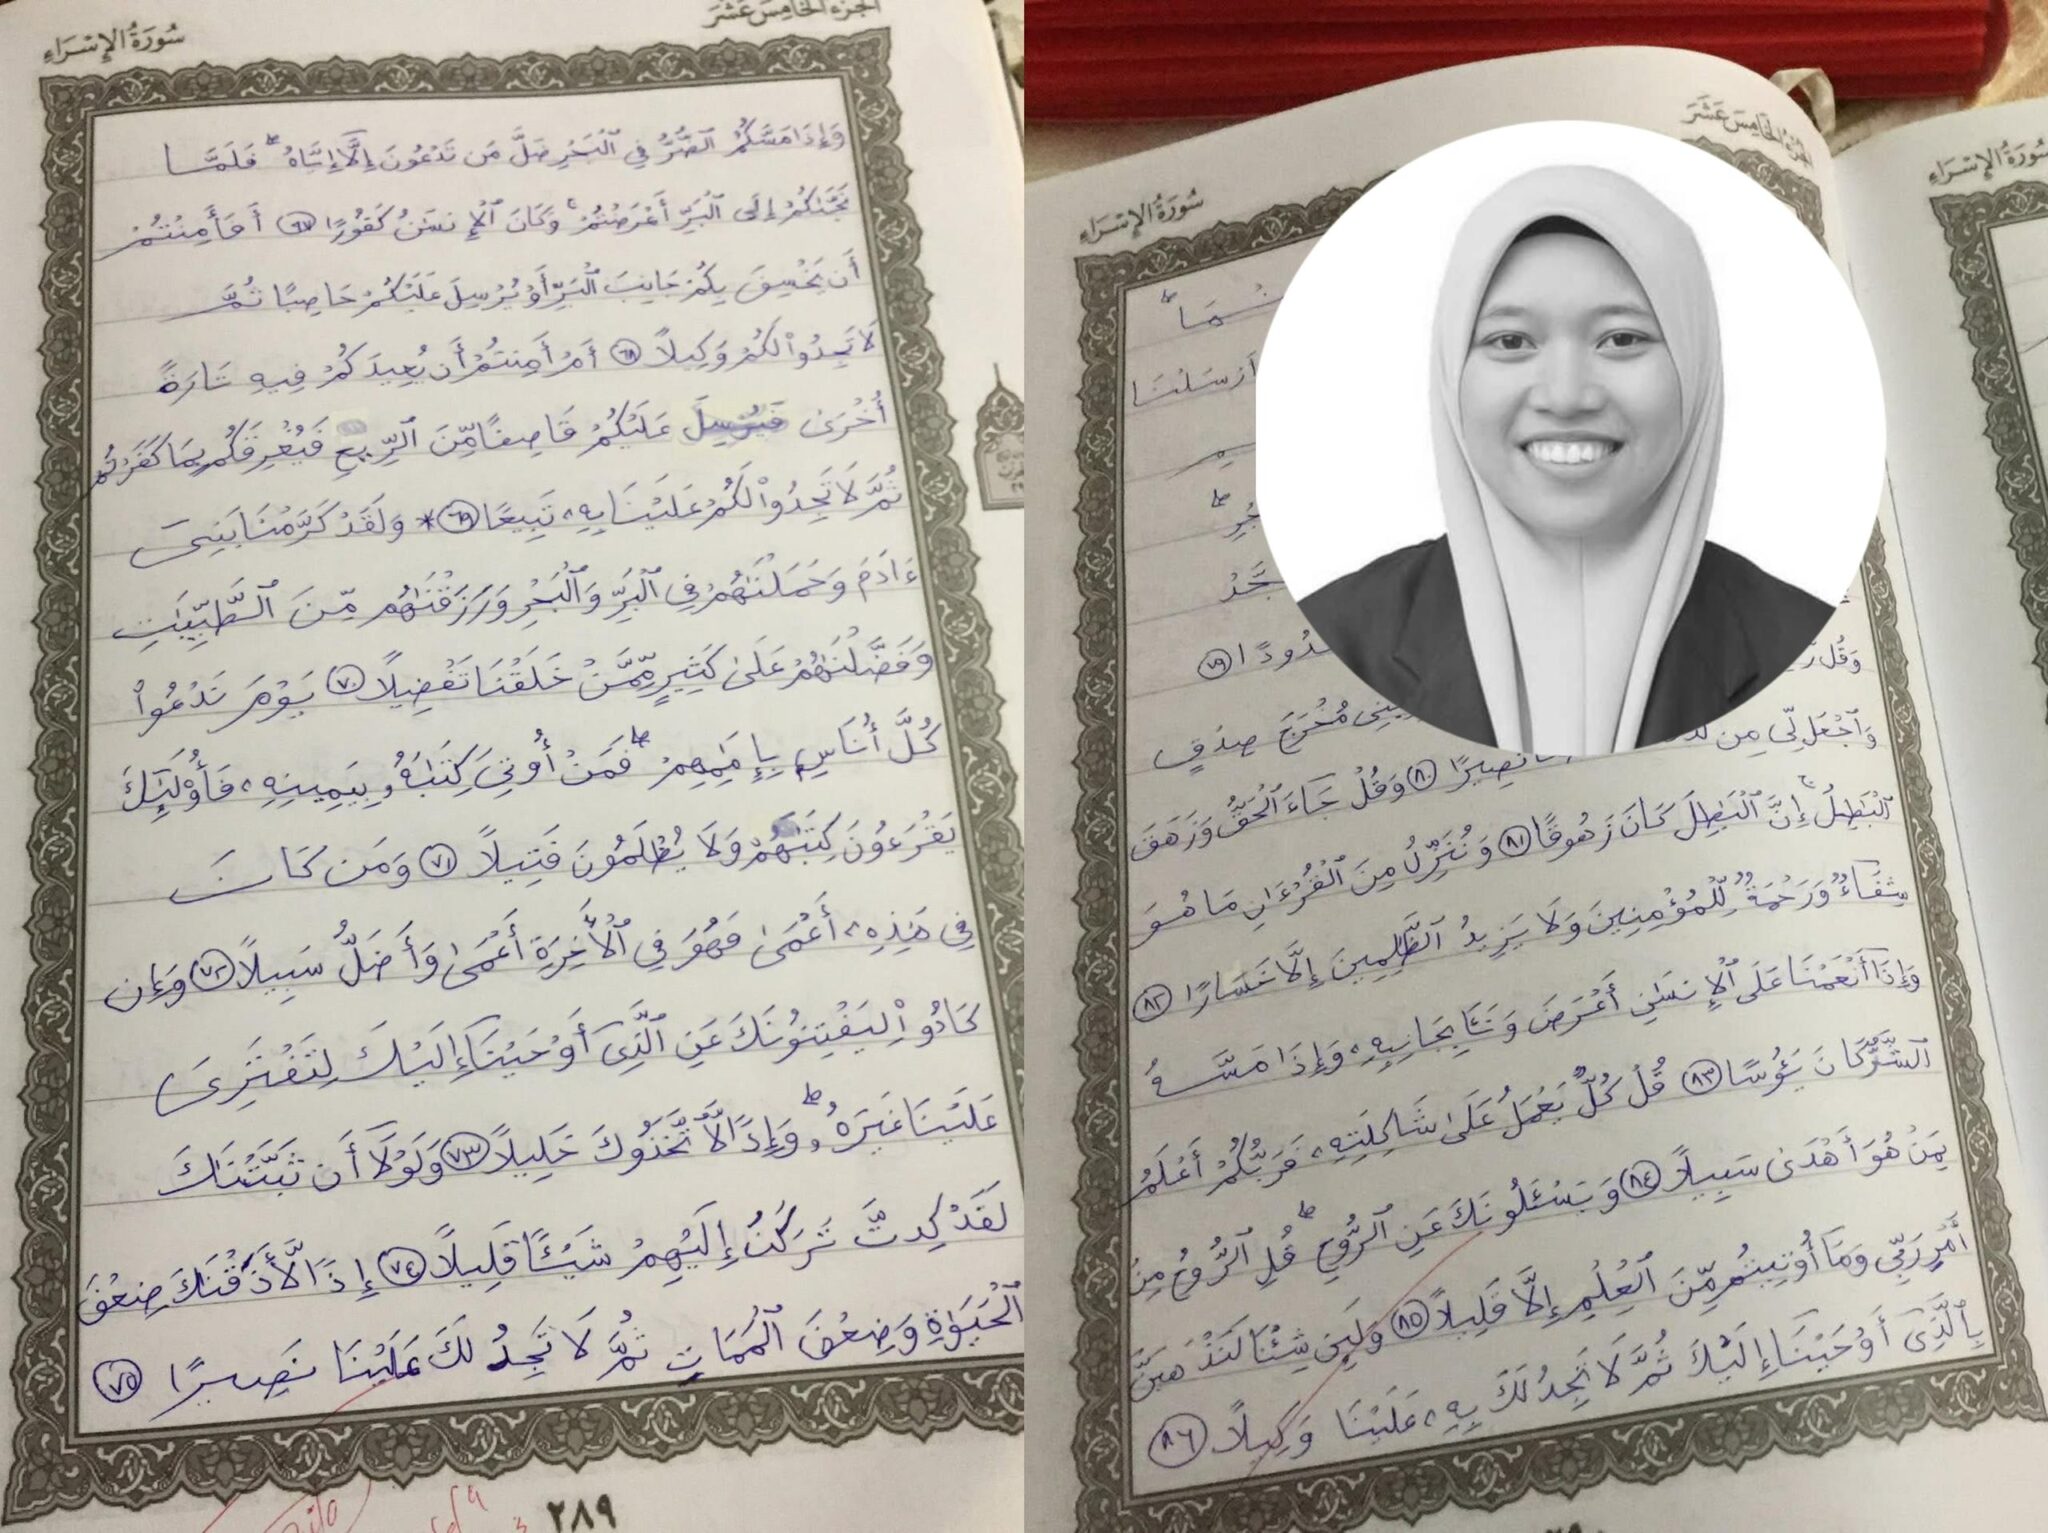 الجزء الخامس عشر
سورة الإسراء
وَإِذَا مَسَّكُمُ ٱلضُّرُّ فِي ٱلْبَحْرِ ضَلَّ مَن تَدْعُونَ إِلَّآ إِيَّاهُ ۖ فَلَمَّا
نَجَّىٰكُمْ إِلَى ٱلْبَرِّ أَعْرَضْتُمْ ۚ وَكَانَ ٱلْإِنسَٰنُ كَفُورًا ٦٧ أَفَأَمِنْتُمْ
أَن يَخْسِفَ بِكُمْ جَانِبَ ٱلْبَرِّ أَوْ يُرْسِلَ عَلَيْكُمْ حَاصِبًا ثُمَّ
لَا تَجِدُوا۟ لَكُمْ وَكِيلًا ٦٨ أَمْ أَمِنتُمْ أَن يُعِيدَكُمْ فِيهِ تَارَةً
أُخْرَىٰ فَيُرْسِلَ عَلَيْكُمْ قَاصِفًا مِّنَ ٱلرِّيحِ فَيُغْرِقَكُم بِمَا كَفَرْتُمْ
ثُمَّ لَا تَجِدُوا۟ لَكُمْ عَلَيْنَا بِهِۦ تَبِيعًا ٦٩ * وَلَقَدْ كَرَّمْنَا بَنِىٓ
ءَادَمَ وَحَمَلْنَٰهُمْ فِي ٱلْبَرِّ وَٱلْبَحْرِ وَرَزَقْنَٰهُم مِّنَ ٱلطَّيِّبَٰتِ
وَفَضَّلْنَٰهُمْ عَلَىٰ كَثِيرٍ مِّمَّنْ خَلَقْنَا تَفْضِيلًا ٧٠ يَوْمَ نَدْعُوا۟
كُلَّ أُنَاسٍۭ بِإِمَٰمِهِمْ ۖ فَمَنْ أُوتِيَ كِتَٰبَهُۥ بِيَمِينِهِۦ فَأُو۟لَٰٓئِكَ
يَقْرَءُونَ كِتَٰبَهُمْ وَلَا يُظْلَمُونَ فَتِيلًا ٧١ وَمَن كَانَ
فِي هَٰذِهِۦٓ أَعْمَىٰ فَهُوَ فِي ٱلْأَٓخِرَةِ أَعْمَىٰ وَأَضَلُّ سَبِيلًا ٧٢ وَإِن
كَادُوا۟ لَيَفْتِنُونَكَ عَنِ ٱلَّذِىٓ أَوْحَيْنَآ إِلَيْكَ لِتَفْتَرِىَ
عَلَيْنَا غَيْرَهُۥ ۖ وَإِذًا لَّٱتَّخَذُوكَ خَلِيلًا ٧٣ وَلَوْلَآ أَن ثَبَّتْنَٰكَ
لَقَدْ كِدتَّ تَرْكَنُ إِلَيْهِمْ شَيْـًٔا قَلِيلًا ٧٤ إِذًا لَّأَذَقْنَٰكَ ضِعْفَ
ٱلْحَيَوٰةِ وَضِعْفَ ٱلْمَمَاتِ ثُمَّ لَا تَجِدُ لَكَ عَلَيْنَا نَصِيرًا ٧٥
٢٨٩
الجزء الخامس عشر
سورة الإسراء
سورة الإسراء
أَرْسَلْنَا
وَقُل
وَٱجْعَل لِّى مِن مُخْرَجَ صِدْقٍ
نَصِيرًا ٨٠ وَقُلْ جَآءَ ٱلْحَقُّ وَزَهَقَ
ٱلْبَٰطِلُ ۚ إِنَّ ٱلْبَٰطِلَ كَانَ زَهُوقًا ٨١ وَنُنَزِّلُ مِنَ ٱلْقُرْءَانِ مَا هُوَ
شِفَآءٌ وَرَحْمَةٌ لِّلْمُؤْمِنِينَ وَلَا يَزِيدُ ٱلظَّٰلِمِينَ إِلَّا خَسَارًا ٨٢
وَإِذَآ أَنْعَمْنَا عَلَى ٱلْإِنسَٰنِ أَعْرَضَ وَنَـَٔا بِجَانِبِهِۦ وَإِذَا مَسَّهُ
ٱلشَّرُّ كَانَ يَـُٔوسًا ٨٣ قُلْ كُلٌّ يَعْمَلُ عَلَىٰ شَاكِلَتِهِۦ فَرَبُّكُمْ أَعْلَمُ
بِمَنْ هُوَ أَهْدَىٰ سَبِيلًا ٨٤ وَيَسْـَٔلُونَكَ عَنِ ٱلرُّوحِ ۖ قُلِ ٱلرُّوحُ مِنْ
أَمْرِ رَبِّي وَمَآ أُوتِيتُم مِّنَ ٱلْعِلْمِ إِلَّا قَلِيلًا ٨٥ وَلَئِن شِئْنَا لَنَذْهَبَنَّ
بِٱلَّذِىٓ أَوْحَيْنَآ إِلَيْكَ ثُمَّ لَا تَجِدُ لَكَ بِهِۦ عَلَيْنَا وَكِيلًا ٨٦